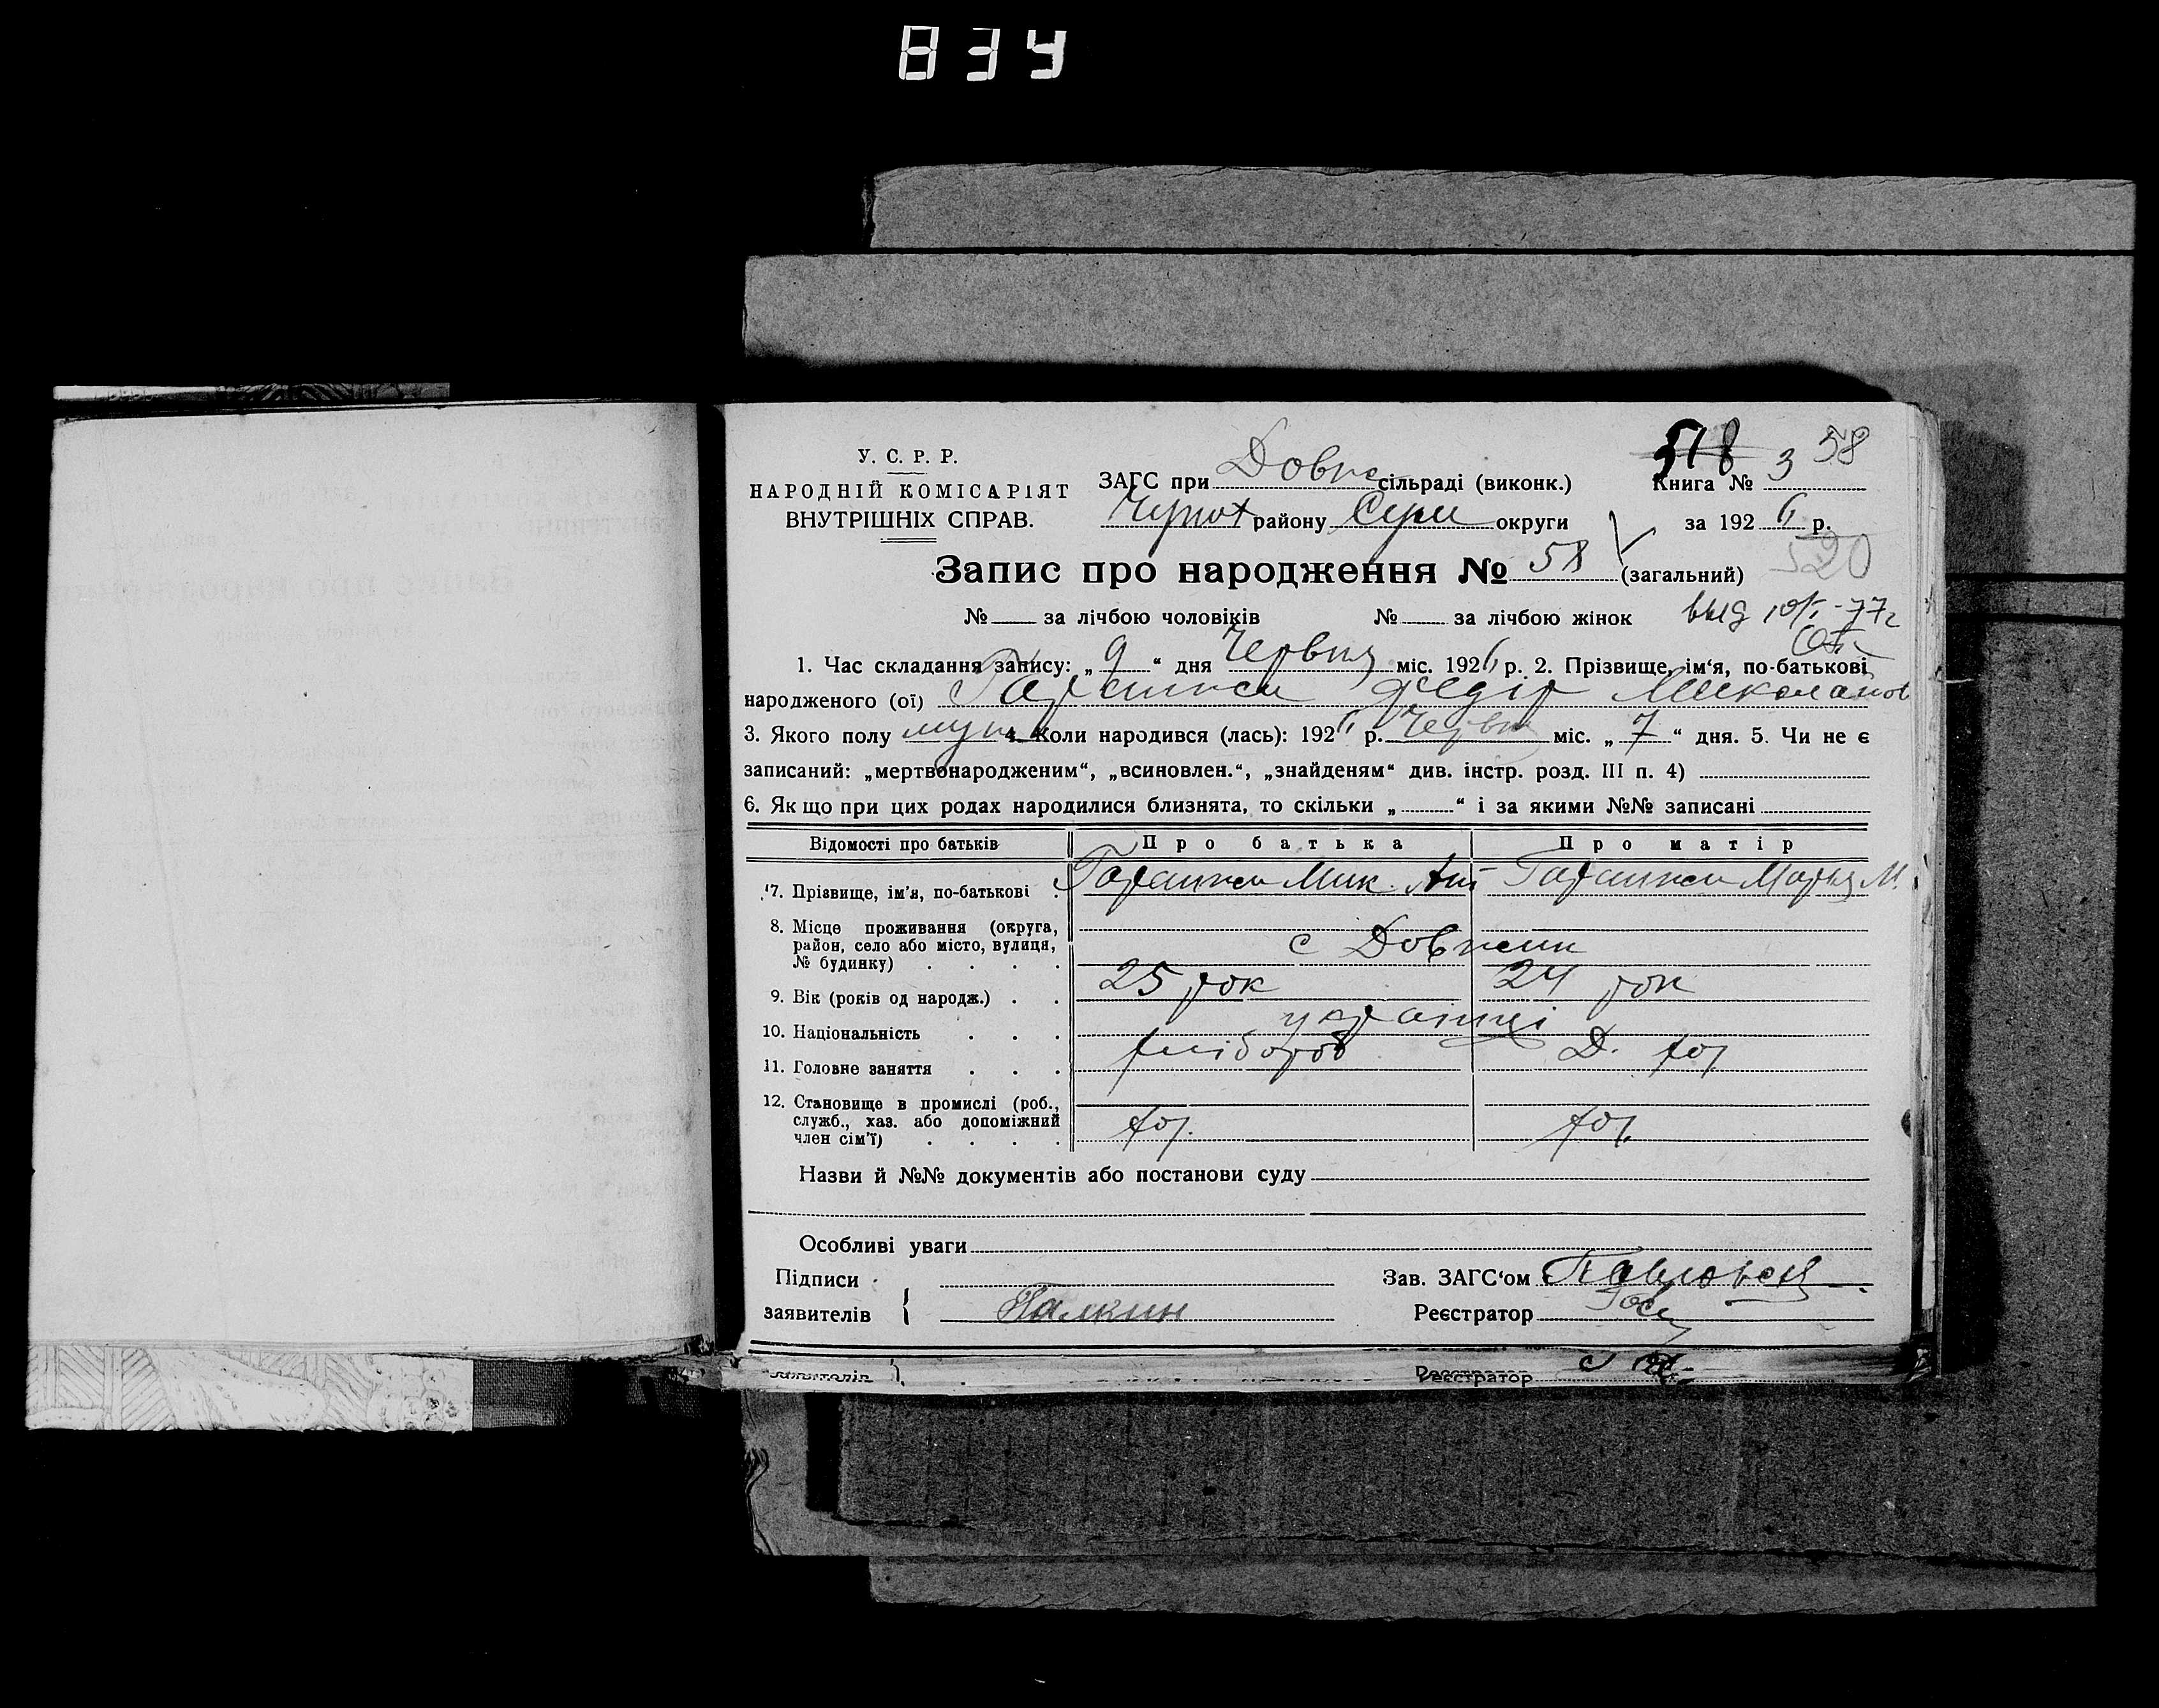 834
У. С. Р. Р.
НАРОДНІЙ КОМІСАРІЯТ
ВНУТРІШНІХ СПРАВ.
ЗАГС при сільраді (виконк.)
району Сум округи
518 58
Книга № 3
за 1926 р.
Запис про народження № 58 (загальний)
520
№ за лічбою чоловіків № за лічбою жінок
выд 77г
1. Час складання запису: „9“ дня Червня міс. 1926 р. 2. Прізвище, ім‘я, по-батькові
народженого (ої) Федір Миколайов
3. Якого полу муж 4. Коли народився (лась): 1926 р. Червня міс. „7“ дня. 5. Чи не є
записаний: „мертвонародженим“, „всиновлен.“, „знайденям“ див. інстр. розд. III п. 4)
6. Якщо при цих родах народилися близнята, то скільки „ “ і за якими №№ записані
Відомості про батьків Про батька Про матір
7. Прізвище, ім'я, по-батькові Мик. Марья М.
8. Місце проживання (округа,
район, село або місто, вулиця,
№ будинку) с
9. Вік (років од народж.) 25 рок 24 рок
10. Національність українці
11. Головне заняття хлібороб Д. хоз
12. Становище в промислі (роб.,
служб., хаз. або допоміжний
член сім'ї) хоз. хоз.
Назви й №№ документів або постанови суду
Особливі уваги
Підписи Зав. ЗАГС‘ом
заявителів Галкин Реєстратор
заявителів Реєстратор
Реєстратор